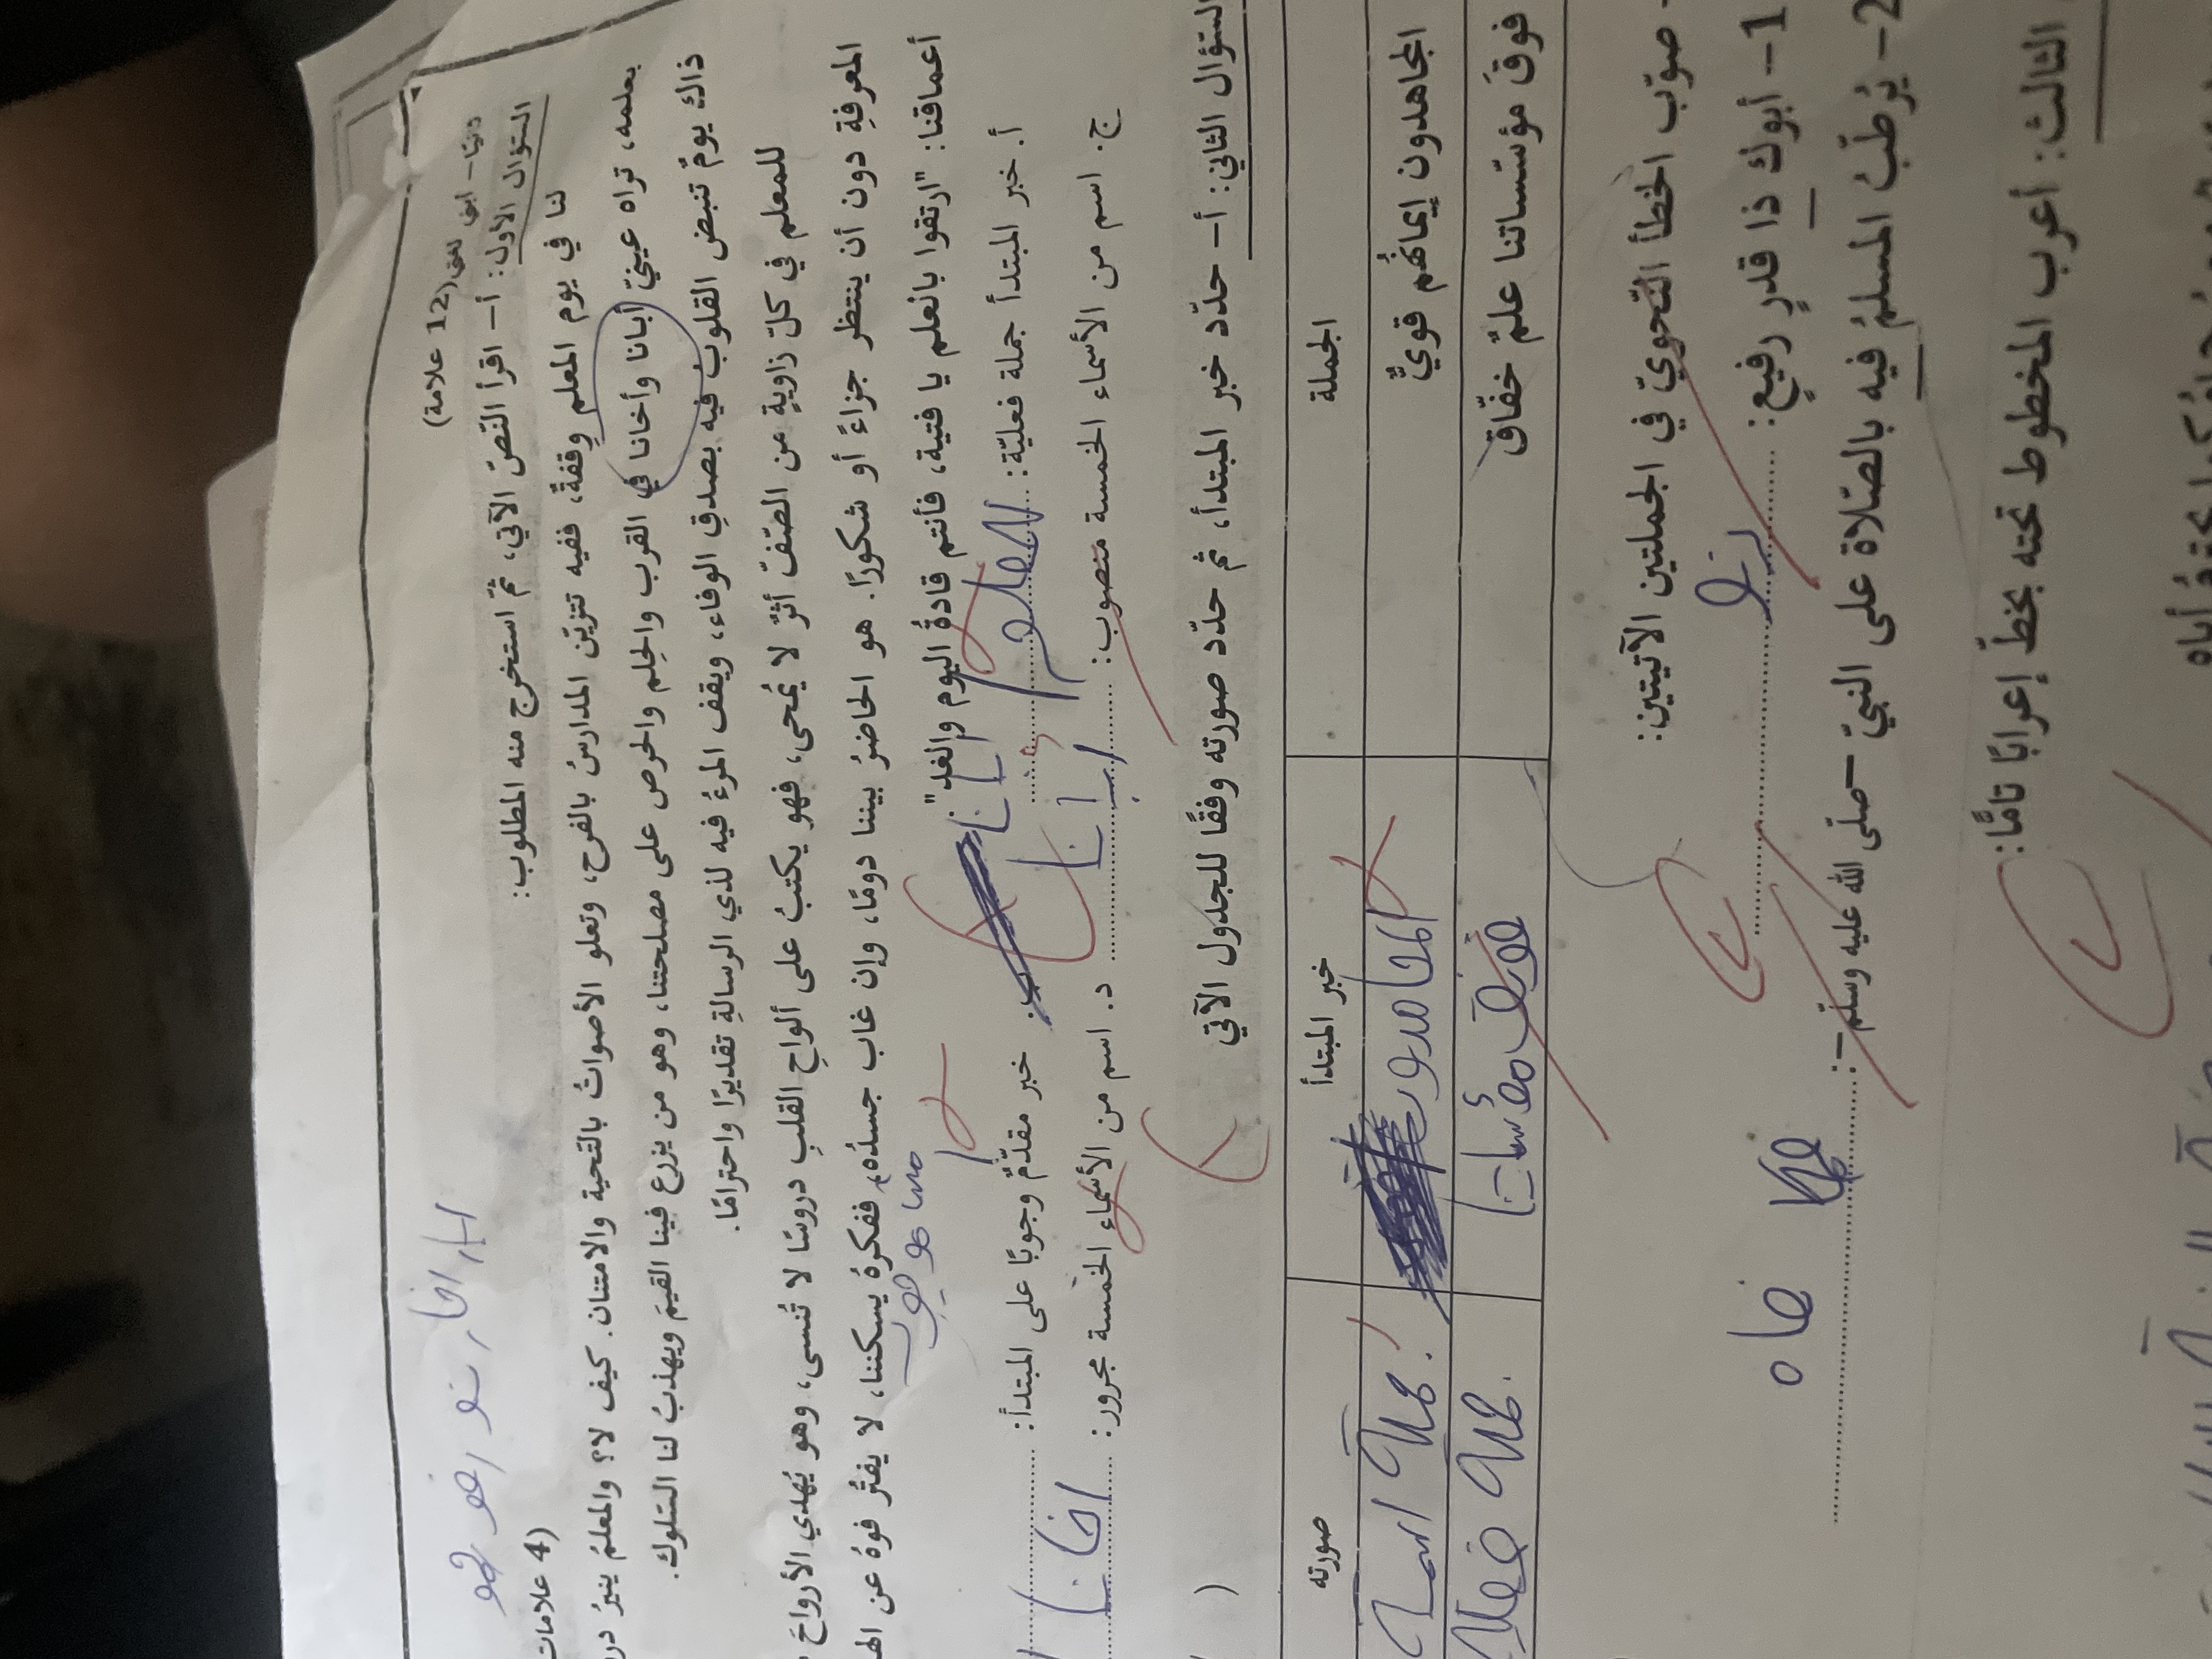 اب, اخ, ذو, فو, حمو
(12 علامة)
السّؤال الأول: أ- اقرأ النّصّ الآتي، ثمّ استخرج منه المطلوب:
(4 علامات
لنا في يوم المعلم وقفةٌ، ففيه تتزيّن المدارسُ بالفرح، وتعلو الأصواتُ بالتحية والامتنان. كيف لا؟ والمعلمُ ينيرُ
بعلمه، تراه عينيّ أبانا وأخانا في القرب والحِلم والحرص على مصلحتنا، وهو من يزرع فينا القيمَ ويهذبُ لنا السّلوك.
ذاك يومٌ تنبض القلوبُ فيه بصدقِ الوفاء، ويقف المرءُ فيه لذي الرسالةِ تقديرًا واحترامًا.
للمعلم في كلّ زاويةٍ من الصّفّ أثرٌ لا يُمحى، فهو يكتبُ على ألواحِ القلبِ دروسًا لا تُنسى، وهو يُهدي الأرواحَ
المعرفةِ دون أن ينتظر جزاءً أو شكورًا. هو الحاضرُ بيننا دومًا، وإن غاب جسدُه، ففكرهُ يسكننا، لا يفترُ فوهُ عن
أعماقنا: "ارتقوا بالعلم يا فتية، فأنتم قادةُ اليوم والغد"
أ. خبر المبتدأ جملة فعليّة: المعلم
خبر مقدّمٌ وجوبًا على المبتدأ:
ج. اسم من الأسماء الخمسة منصوب: ابانا
د. اسم من الأسماء الخمسة مجرور: اخانا
السّؤال الثاني: أ- حدّد خبر المبتدأ، ثم حدّد صورته وفقًا للجدول الآتي
الجملة خبر المبتدأ صورته
المجاهدون إيمانُهُم قويٌّ المجاهدون جملة اسمية
فوقَ مؤسّساتنا علمٌ خفّاق فوق مؤسساتنا جملة فعلية
- صوّب الخطأ النّحويّ في الجملتين الآتيتين:
1- أبوك ذا قدرٍ رفيعٍ: ذو
2- يُرطّبُ المسلمُ فيه بالصّلاة على النبيّ –صلّى الله عليه وسلّم-: فاه
الثالث: أعرب المخطوط تحته بخطّ إعرابًا تامًّا:
أباه